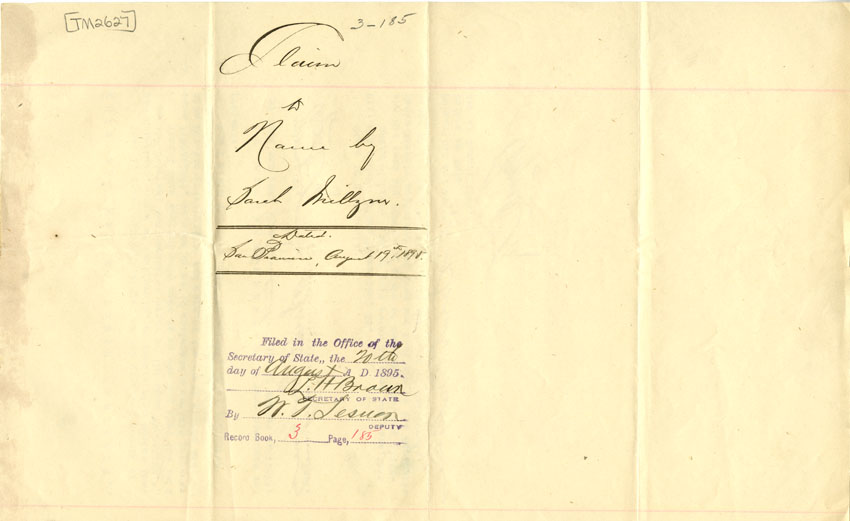 TM2627
3-185
Claim
to
Name by
Sarah
Dated.
San Francisco, August 19th, 1895.
Filed in the Office of the
Secretary of State,, the 20th
day of August A. D. 1895.
L. H. Brown
SECRETARY OF STATE
By W. T. Sesnon
DEPUTY
Record Book, 3 Page, 185